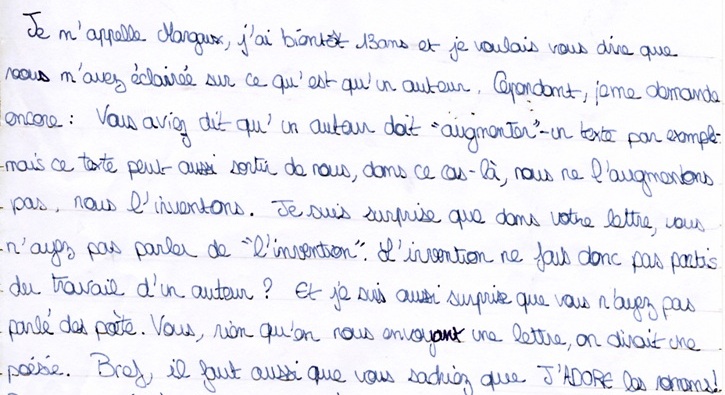 Je m'appelle Margaux, j'ai bientôt 13ans et je voulais vous dire que
vous m'avez éclairée sur ce qu'est qu'un auteur. Cependant, je me demande
encore : Vous aviez dit qu'un auteur doit "augmenter" un texte par exemple
mais ce texte peut aussi sortir de nous, dans ce cas-là, nous ne l'augmentons
pas, nous l'inventons. Je suis surprise que dans votre lettre, vous
n'ayez pas parler de "l'invention". L'invention ne fais donc pas partis
du travail d'un auteur ? Et je suis aussi surprise que vous n'ayez pas
parlé des poète. Vous, rien qu'en nous envoyant une lettre, on dirait une
poésie. Bref, il faut aussi que vous sachiez que J'ADORE les romans!